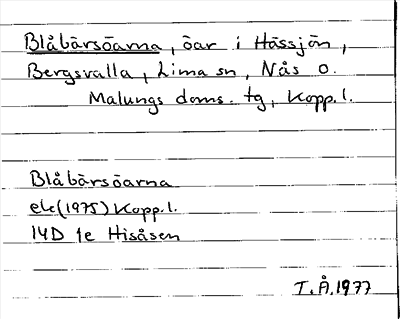 Blåbärsöarna, öar i Hässjön,
Bergsvalla, Lima sn, Nås o.
Malungs doms. tg, Kopp.l.
Blåbärsöarna
ek(1975) Kopp.l.
14D 1e Hisåsen
T.Å.1977